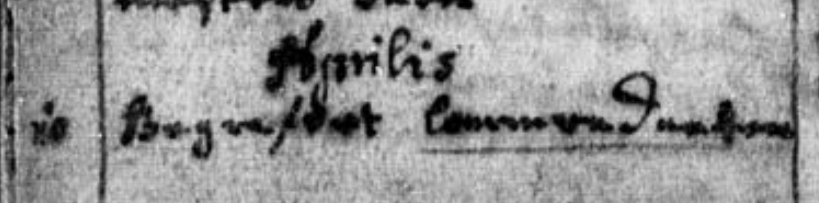 Aprilis
10 Begrafvet Commendanten